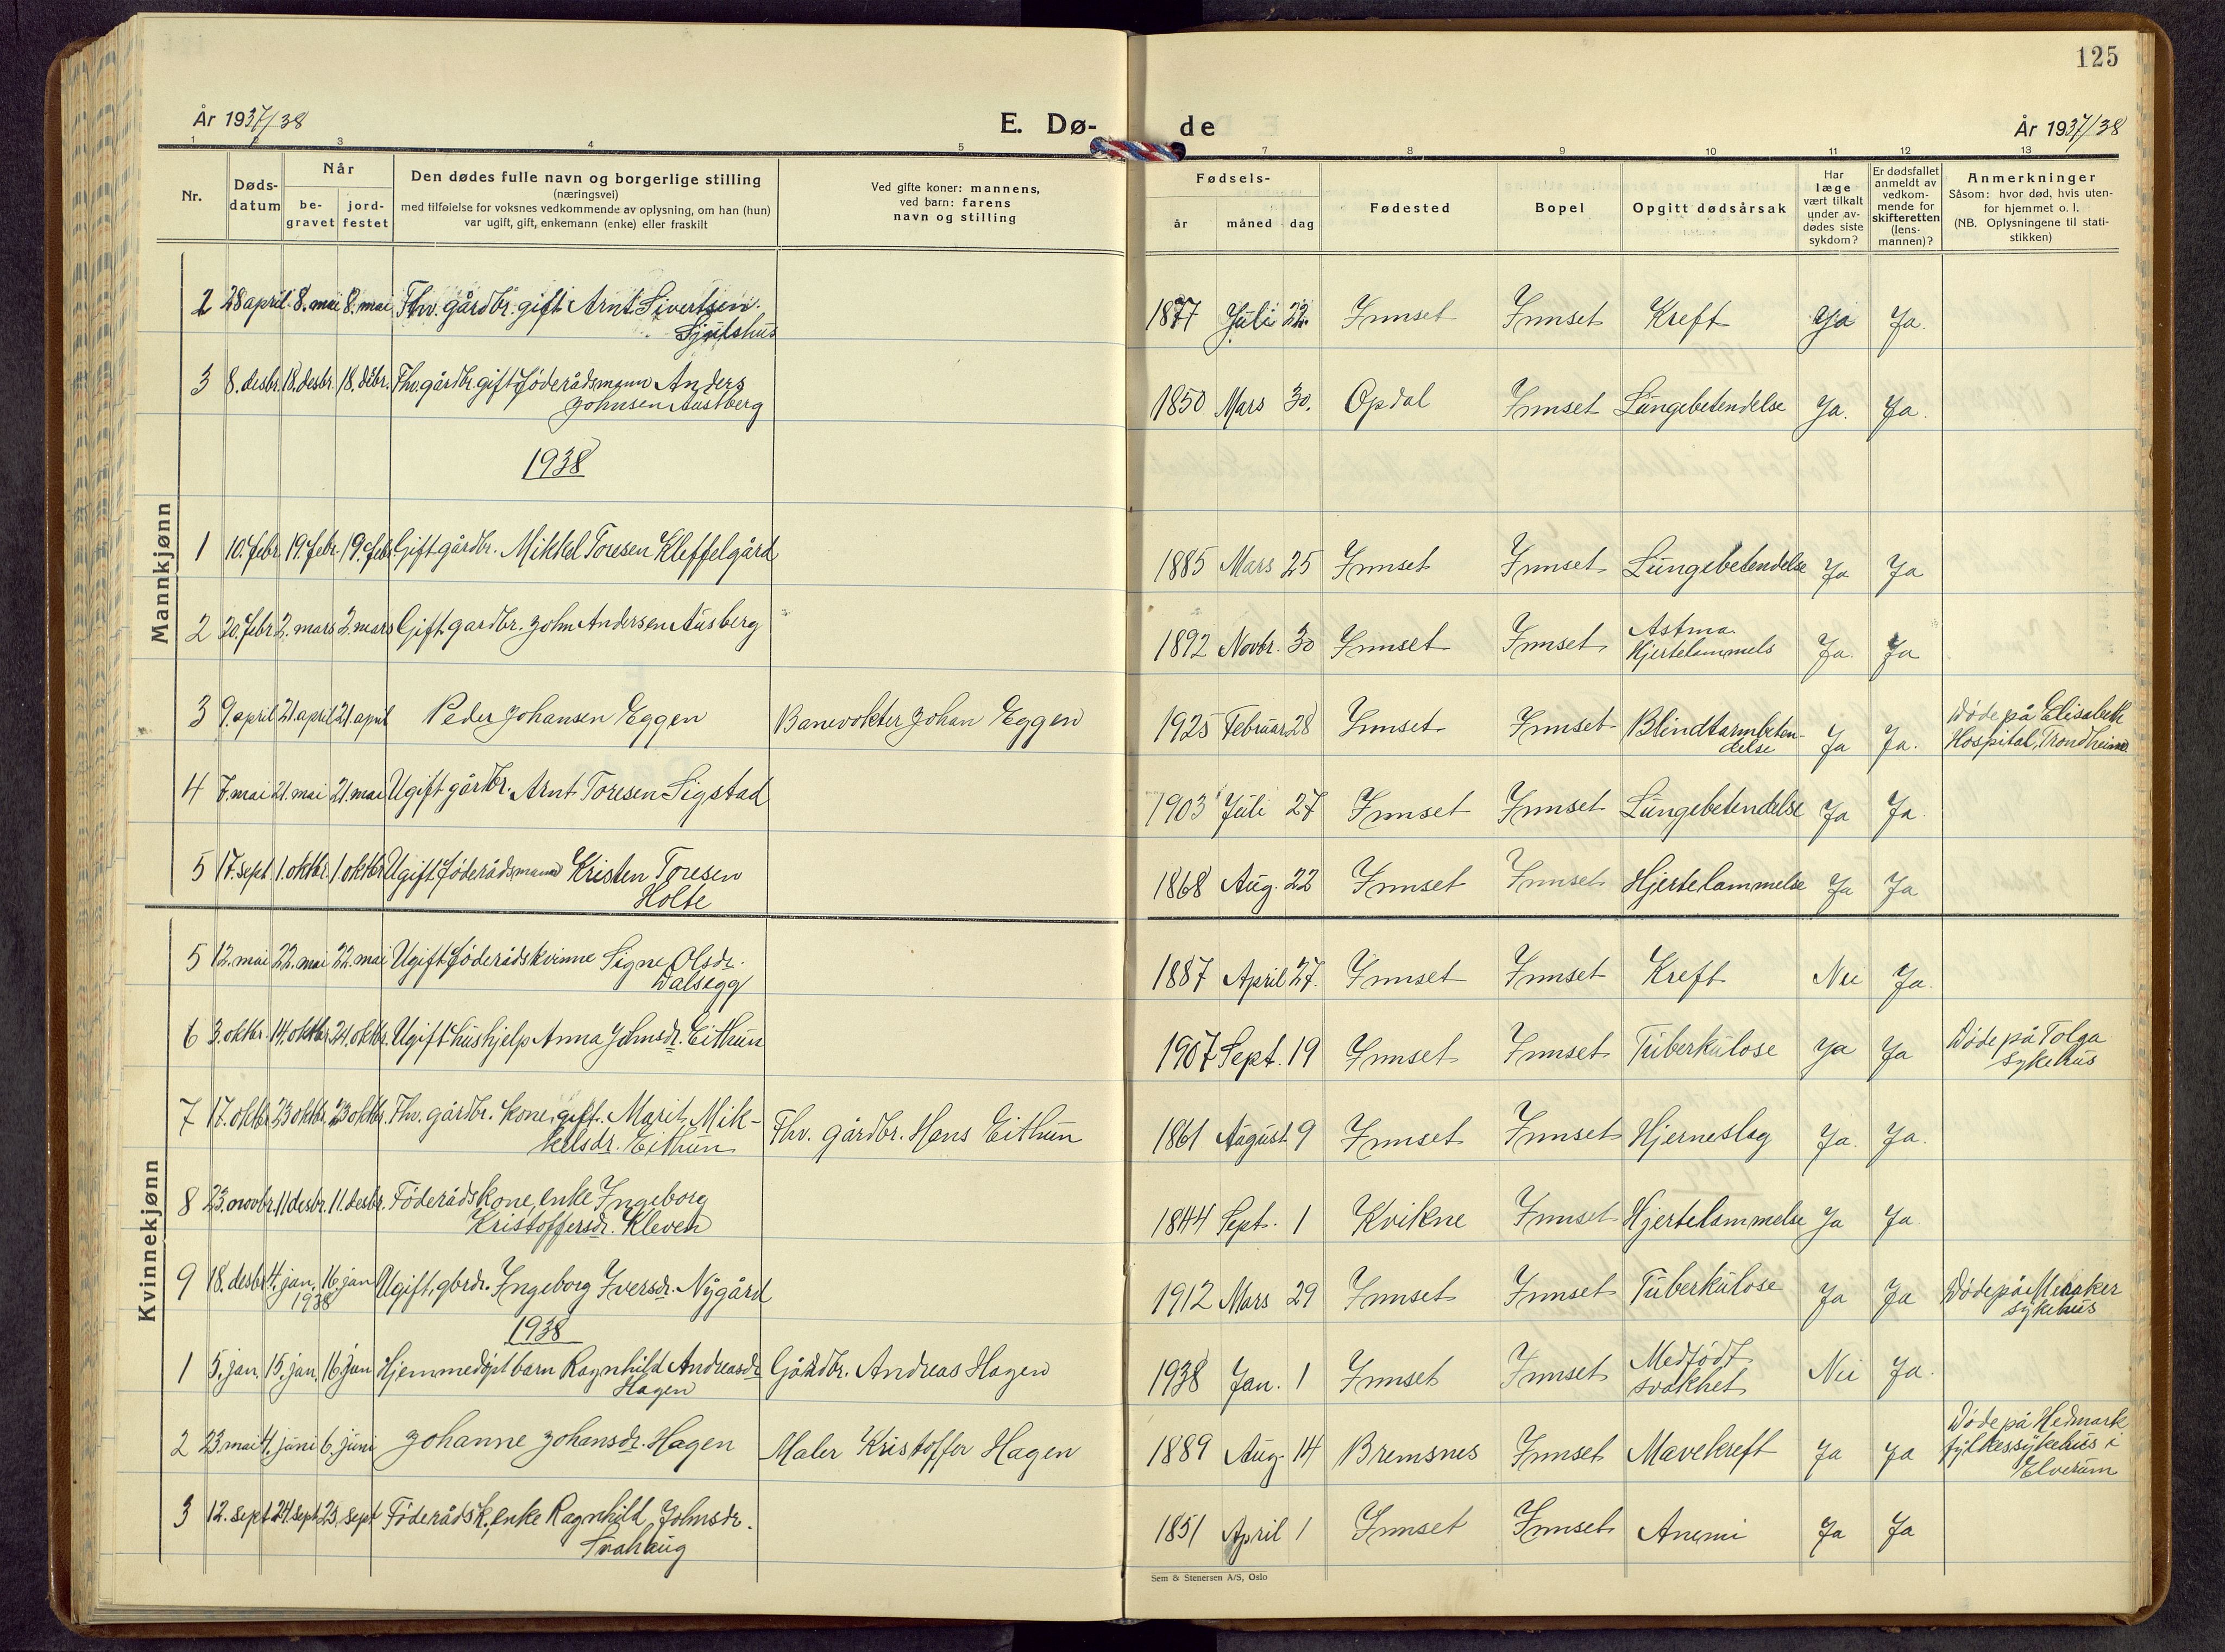 125
År 1937/38
E. Dø-
de
År 1937/38
1 2 3 4 5 7 8 9 10 11 12 13
Nr.
Døds-
datum
Når
be-
gravet
jord-
festet
Den dødes fulle navn og borgerlige stilling
(næringsvei)
med tilføielse for voksnes vedkommende av oplysning, om han (hun)
var ugift, gift, enkemann (enke) eller fraskilt
Ved gifte koner: mannens,
ved barn: farens
navn og stilling
Fødsels-
år måned dag
Fødested
Bopel
Opgitt dødsårsak
Har
læge
vært tilkalt
under av-
dødes siste
sykdom?
Er dødsfallet
anmeldt av
vedkom-
mende for
skifteretten
(lens-
mannen)?
Anmerkninger
Såsom: hvor død, hvis uten-
for hjemmet o. l.
(NB. Oplysningene til stati-
stikken)
Mannkjønn
2 28 april 8. mai 8. mai Fhv. gårdbr. gift Arnt Sivertsen
Sjulshus
1877 Juli 22. Innset Innset Kreft Ja Ja.
3 8. desbr. 18. desbr. 18. debr. Fhv. gårdbr. gift Föderådsmann Anders
Johnsen Austberg
1850 Mars 30. Opdal Innset Lungebetendelse Ja. Ja.
1938
1 10. febr. 19. febr. 19. febr. Gift gårdbr. Mikkel Toresen Kleffelgård
1885 Mars 25 Innset Innset Lungebetendelse Ja Ja
2 20. febr. 2. mars 2. mars Gift gardbr. John Andersen Ausberg
1892 Novbr. 30 Innset Innset Astma
Hjertelammels Ja. Ja
3 9. april 21. april 21. april Peder Johansen Eggen Banevokter Johan Eggen
1925 Februar 28 Innset Innset Blindtarmbeten-
delse Ja Ja. Döde på Elisabeth
Hospital, Trondheim
4 7. mai 21. mai 21. mai Ugift gårbr. Arnt Toresen Sigstad
1903 Juli 27 Innset Innset Lungebetendelse Ja Ja
5 17. sept. 1. oktbr. 1. oktbr Ugift Föderådsmann Kristen Toresen
Holte
1868 Aug. 22 Innset Innset Hjertelammelse Ja Ja
Kvinnekjønn
5 12. mai 22. mai 22. mai Ugift Föderådskvinne Signe Olsdr.
Dalsegg
1887 April 27. Innset Innset Kreft Nei Ja.
6 3. oktbr. 14. oktbr. 24. oktbr. Ugift hushjelp Anna Johnsdr. Eithun
1907 Sept. 19 Innset Innset Tuberkulose Ja Ja Döde på Tolga
sykehus
7 17. oktbr 23 oktbr. 23 oktbr. Fhv. gårdbr. kone, gift. Marit Mik-
kelsdr. Eithun Fhv. gårdbr. Hans Eithun
1861 August 9 Innset Innset Hjerneslag Ja. Ja.
8 23. novbr. 11 desbr. 11. desbr. Föderådskone, enke Ingeborg
Kristoffersdr. Kleven
1844 Sept. 1 Kvikne Innset Hjertelammelse Ja Ja.
9 18. desbr 4. jan. 16. jan Ugift, gbrdr. Ingeborg Iversdr. Nygård
1938
1912 Mars 29 Innset Innset Tuberkulose Ja Ja Döde på Meraker
sykehus
1938
1 5. jan. 15. jan. 16. jan Hjemmedöpt barn Ragnhild Andreasdr.
Hagen Gårdbr. Andreas Hagen
1938 Jan. 1 Innset Innset Medfödt
svakhet Nei Ja.
2 23. mai 4. juni 6. juni Johanne Johansdr. Hagen Maler Kristoffer Hagen
1889 Aug. 14 Bremsnes Innset Mavekreft Ja Ja Döde på Hedmark
fylkessykehus i
Elverum
3 12. sept 24. sept 25. sept Föderådsk., enke Ragnhild Johnsdr.
1851 April 1 Innset Innset Anemi Ja Ja
Sem & Stenersen A/S, Oslo